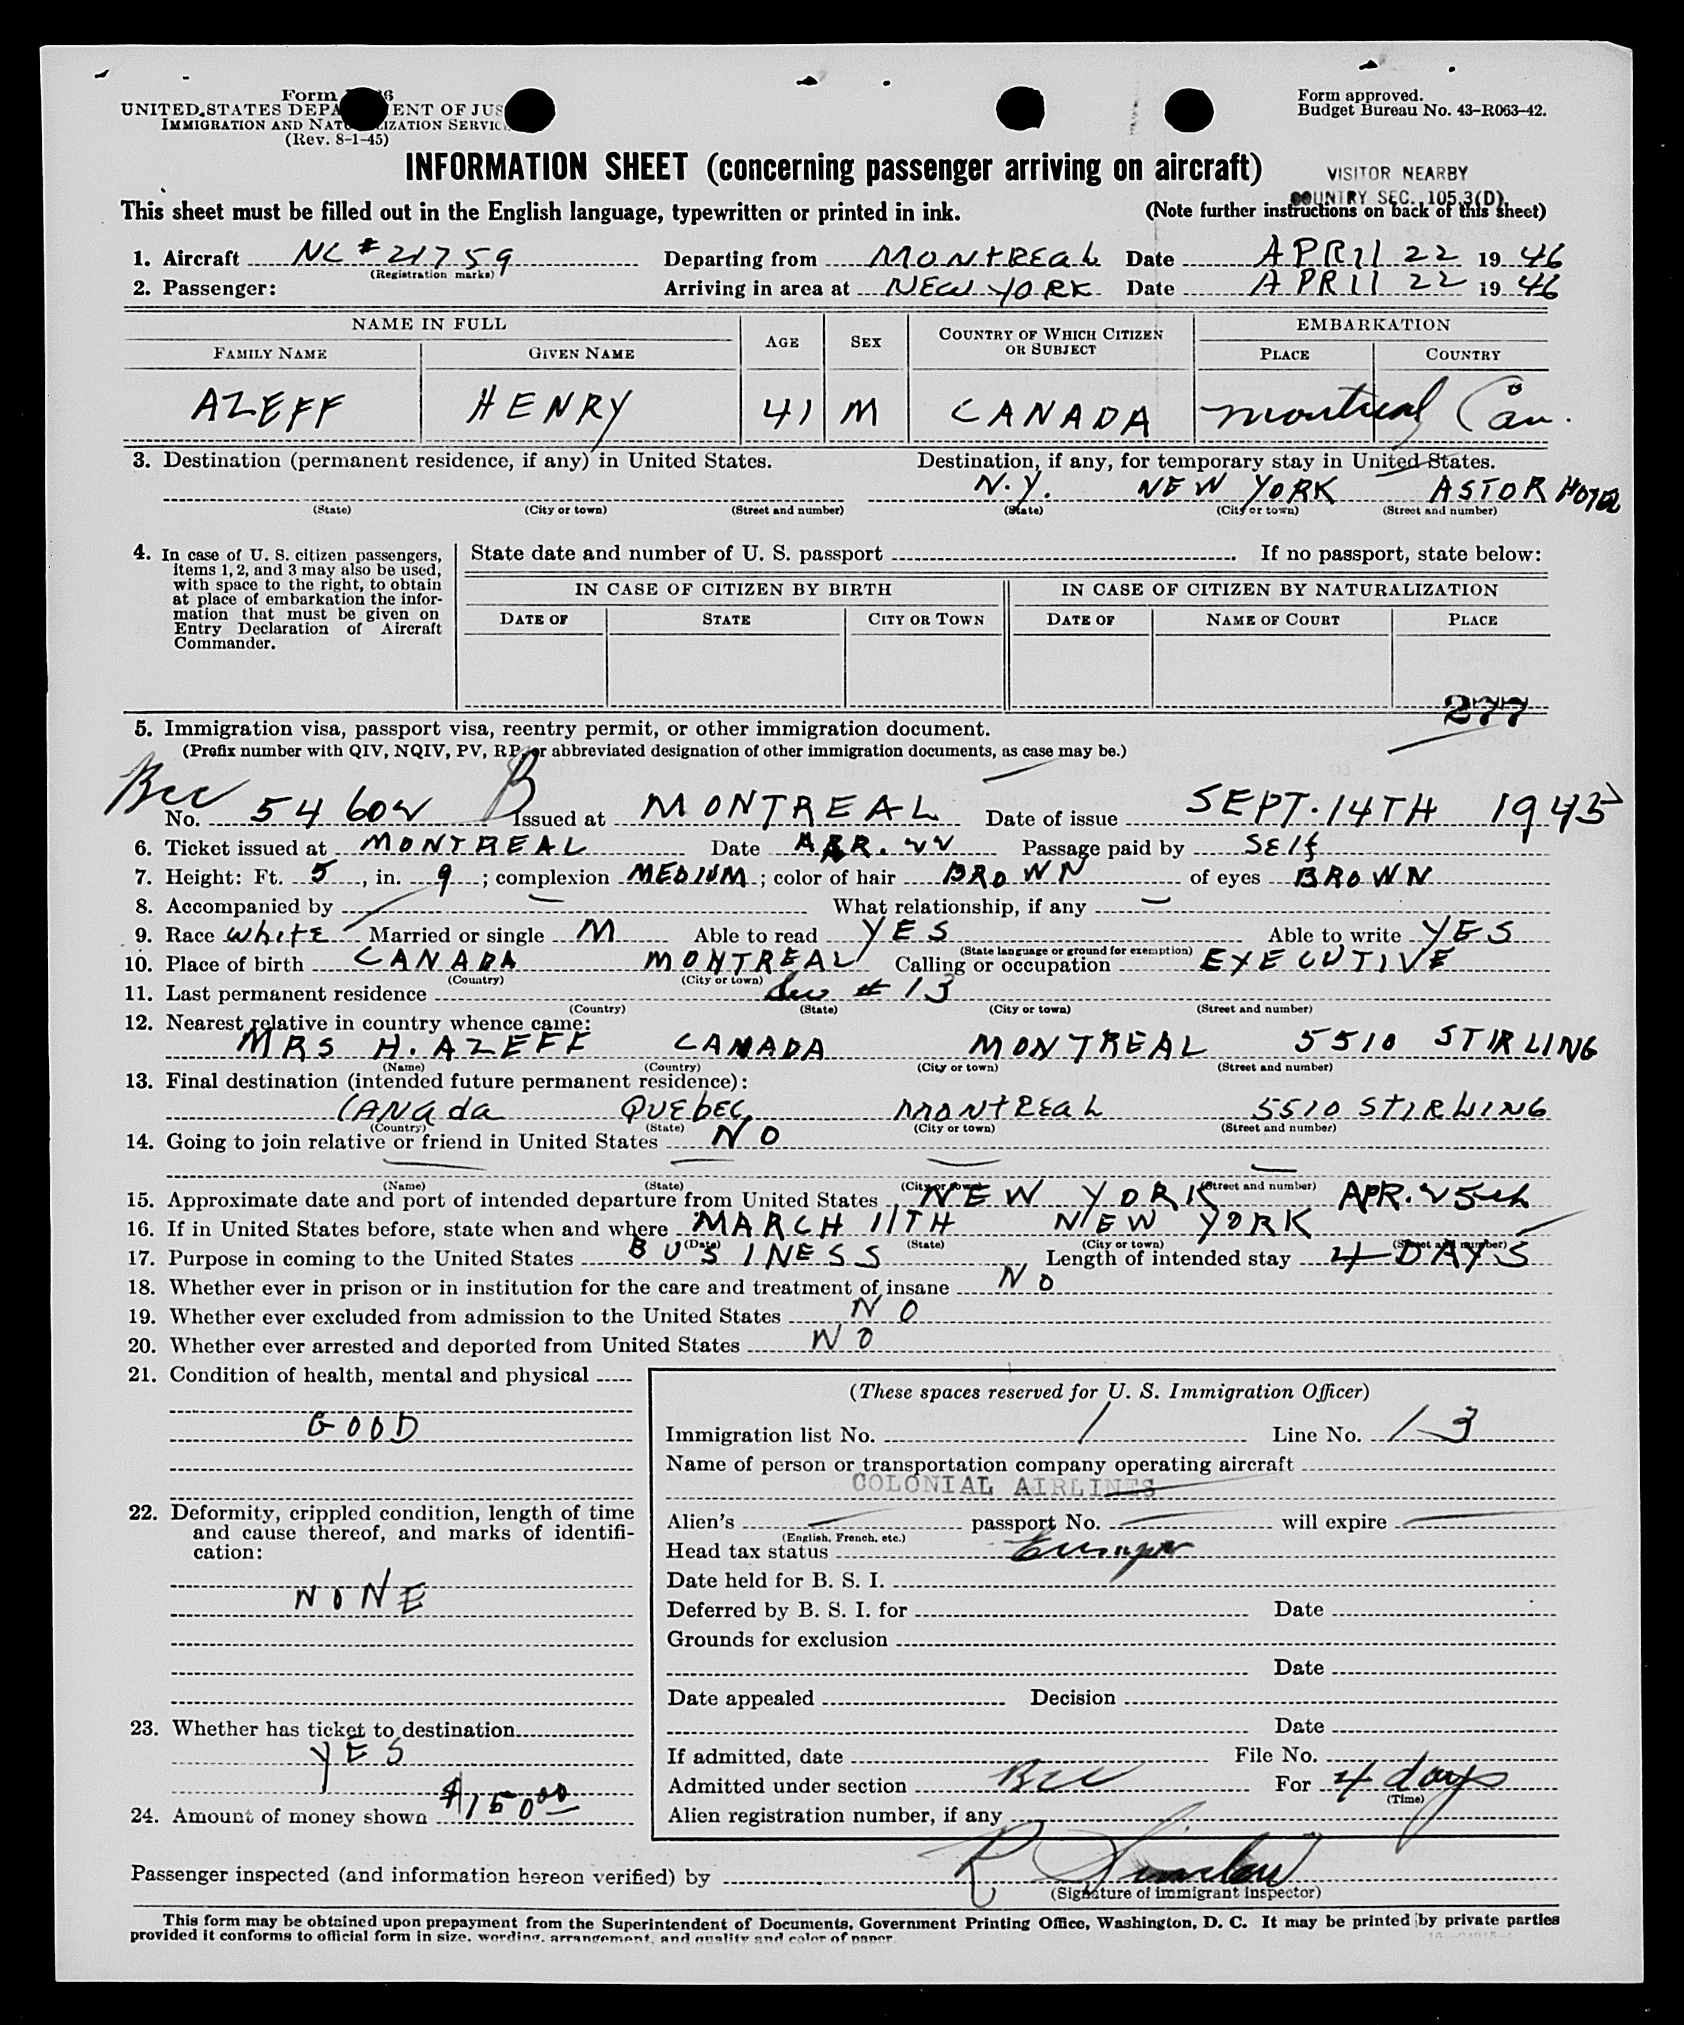 Form
Form approved.
UNITED STATES DEPA ENT OF JUS
Budget Bureau No. 43-R063-42.
IMMIGRATION AND NAT IZATION SERVIC
(Rev. 8-1-45)
INFORMATION SHEET (concerning passenger arriving on aircraft)
VISITOR NEARBY
COUNTRY SEC. 105.3(D)
This sheet must be filled out in the English language, typewritten or printed in ink.
(Note further instructions on back of this sheet)
1. Aircraft NC # 21759 Departing from MONTREAL Date APRIL 22 1946
(Registration marks)
2. Passenger: Arriving in area at NEW YORK Date APRIL 22 1946
NAME IN FULL
AGE SEX COUNTRY OF WHICH CITIZEN OR SUBJECT
EMBARKATION
FAMILY NAME GIVEN NAME PLACE COUNTRY
AZEFF HENRY 41 M CANADA Montreal Can.
3. Destination (permanent residence, if any) in United States. Destination, if any, for temporary stay in United States.
N.Y. NEW YORK ASTOR HOTEL
(State) (City or town) (Street and number) (State) (City or town) (Street and number)
4. In case of U. S. citizen passengers, items 1, 2, and 3 may also be used, with space to the right, to obtain at place of embarkation the information that must be given on Entry Declaration of Aircraft Commander.
State date and number of U. S. passport . If no passport, state below:
IN CASE OF CITIZEN BY BIRTH IN CASE OF CITIZEN BY NATURALIZATION
DATE OF STATE CITY OR TOWN DATE OF NAME OF COURT PLACE
277
5. Immigration visa, passport visa, reentry permit, or other immigration document.
(Prefix number with QIV, NQIV, PV, RP, or abbreviated designation of other immigration documents, as case may be.)
Bcc No. 54602 B Issued at MONTREAL Date of issue SEPT. 14TH 1945
6. Ticket issued at MONTREAL Date APR. 22 Passage paid by SELf
7. Height: Ft. 5, in. 9; complexion MEDIUM; color of hair BROWN of eyes BROWN
8. Accompanied by — What relationship, if any —
9. Race WhITE Married or single M Able to read YES Able to write YES
(State language or ground for exemption)
10. Place of birth CANADA MONTREAL Calling or occupation EXECUTIVE
(Country) (City or town)
11. Last permanent residence See # 13
(Country) (State) (City or town) (Street and number)
12. Nearest relative in country whence came:
MRS H. AZEFF CANADA MONTREAL 5510 STIRLING
(Name) (Country) (City or town) (Street and number)
13. Final destination (intended future permanent residence):
CANAda QUEbEC MONTREAL 5510 STIRLING
(Country) (State) (City or town) (Street and number)
14. Going to join relative or friend in United States NO
(Name) (State) (City or town) (Street and number)
15. Approximate date and port of intended departure from United States NEW YORK APR. 25th
16. If in United States before, state when and where MARCH 11TH NEW YORK
(Date) (State) (City or town) (Street and number)
17. Purpose in coming to the United States BUSINESS Length of intended stay 4 DAYS
18. Whether ever in prison or in institution for the care and treatment of insane NO
19. Whether ever excluded from admission to the United States NO
20. Whether ever arrested and deported from United States NO
21. Condition of health, mental and physical
GOOD
22. Deformity, crippled condition, length of time and cause thereof, and marks of identification:
NONE
23. Whether has ticket to destination
YES
24. Amount of money shown $150 00
(These spaces reserved for U. S. Immigration Officer)
Immigration list No. 1 Line No. 13
Name of person or transportation company operating aircraft
COLONIAL AIRLINES
Alien's — passport No. — will expire —
(English, French, etc.)
Head tax status
Date held for B. S. I.
Deferred by B. S. I. for Date
Grounds for exclusion
Date
Date appealed Decision
Date
If admitted, date File No.
Admitted under section Bcc For 4 days
(Time)
Alien registration number, if any
Passenger inspected (and information hereon verified) by R
(Signature of immigrant inspector)
This form may be obtained upon prepayment from the Superintendent of Documents, Government Printing Office, Washington, D. C. It may be printed by private parties
provided it conforms to official form in size, wording, arrangement, and quality and color of paper.